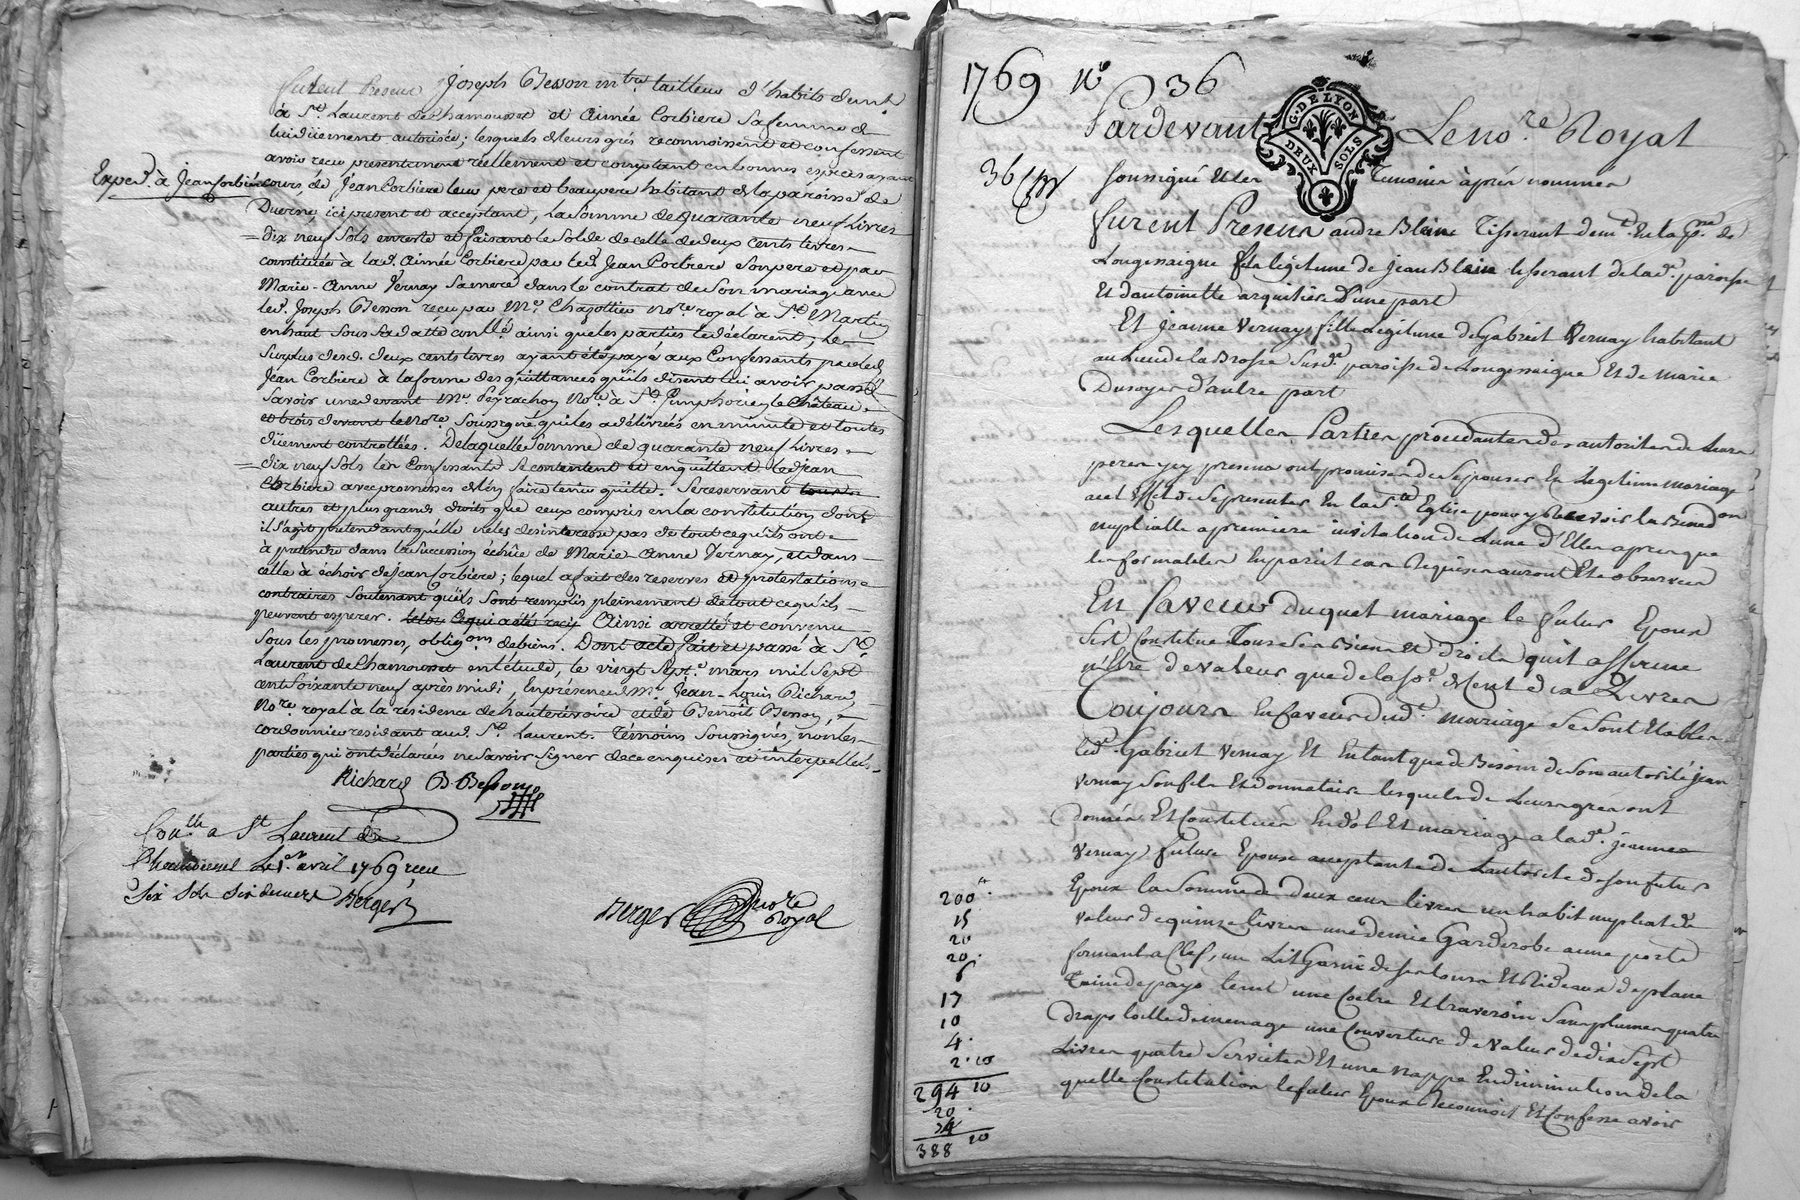 furent Presens Joseph Besson mtre. tailleur d'habits demt.
à St. Laurent de Chamousset et Aimée Corbiere sa femme de
lui dûement autorisée; lesquels de leurs grés reconnoissent et confessent
avoir reçu presentement réellement et comptant en bonnes especes ayant
Exped. à Jean Corbiere
cours, de Jean Corbiere leur pere et beaupere habitant de la paroisse de
Duerne ici present et acceptant, la somme de quarante neuf Livres
dix neuf sols en reste et faisant le solde de celle de deux cents livres
constituée à lad. Aimée Corbiere par led. Jean Corbiere son pere et par
Marie-Anne Vernay sa mere dans le contrat de son mariage avec
led. Joseph Besson reçu par Me. Chazottier nore. royal à St. Martin
en haut sous sa datte conllé ainsi que les parties le déclarent, le
surplus desd. deux cents livres ayant été payé aux Confessants par led.
Jean Corbiere à la forme des quittances qu'ils disent lui avoir passé
savoir une devant Me. Peyrachon Nore. à St. Simphorien le château
et trois devant le Nore. soussigné qui les a délivrées en minute et toutes
dûement controllées. De laquelle somme de quarante neuf Livres
dix neuf sols les Confessants se contentent et en quittent led. Jean
Corbiere avec promesses de l'en faire tenir quitte. Se reservant tous
autres et plus grands droits que ceux compris en la constitution dont
il s'agit pretendant qu'elle ne les desinteresse pas de tout ce qu'ils ont
à pretendre dans la succession échüe de Marie Anne Vernay, et dans
celle à échoir de Jean Corbiere; lequel a fait des reserves et protestations
contraires soutenant qu'ils sont remplis pleinement de tout ce qu'ils
peuvent esperer. Ainsi arretté et convenu
sous les promesses, obligons. de biens. Dont acte fait et passé à St.
Laurent de Chamousset en l'étude, le vingt sept. mars mil sept
cent soixante neuf après midi, En présence de Me. Jean-Louis Richard
Nore. royal à la résidence de hauterivoire et de Benoît Besson,
cordonnier residant aud. St. Laurent. Témoins soussignés, non les
parties qui ont déclarés ne savoir signer de ce enquises et interpellées
Richard B. Besson
Conllé a St Laurent de
Chamousset le 1er. avril 1769 reçu
six sols six deniers Berger
Berger nore Royal
1769 No 36
G. DE LYON
DEUX SOLS
Pardevant Le nore. Royal
36
soussigné et les temoins après nommés
furent Presens andre Blein Tisserant demt. En la pse. de
Longessaigne fils légitime de jean Blein tisserant de lad. paroisse
Et d'antoinette arquilière d'une part
Et jeanne vernay fille Légitime de Gabriel Vernay habitant
au Lieu de la Brosse susde. paroisse de Longessaigne Et de marie
Dusoyer d'autre part
Lesquelles Parties procedantes des autorités de Leurs
peres y presens ont promises de s'épouser En Legitime mariage
a cet Effet de se presenter En la Ste Eglise pour y Recevoir la Benedon
nuptialle a premiere invitation de L'une d'Elles apres que
les formalités En pareil cas Requises auront Eté observées
En faveur duquel mariage le futur Epoux
s'est Constitué Tous ses Biens Et Droits qu'il affirme
n'être de valeur que de la so. de Cent dix Livres
Toujours En faveur dudt. mariage se sont Etablis
ledt. Gabriel vernay Et Entant que de Besoin de son autorité jean
vernay son fils Et Donnataire lesquels de Leurs grés ont
donnés Et Constitués En dot Et mariage a lade. jeanne
vernay future Epouse acceptante de L'autorité de son futur
Epoux la somme de deux cens livres un habit nuptial de
valeur de quinze livres une demie Garderobe a une porte
fermant a Clef, un Lit Garni de ses tours Et Rideaux de plane
Trine de pays teint une Coetre Et traversin sans plumes quatre
draps toille de menage une Couverture de valeur de dix Sept
Livres quatre serviettes Et une nappe En diminution de la
quelle Constitution le futur Epoux Reconnoit Et Confesse avoir
200
15
20
20
6
17
10
4
2. 10
294 10
20
388 10